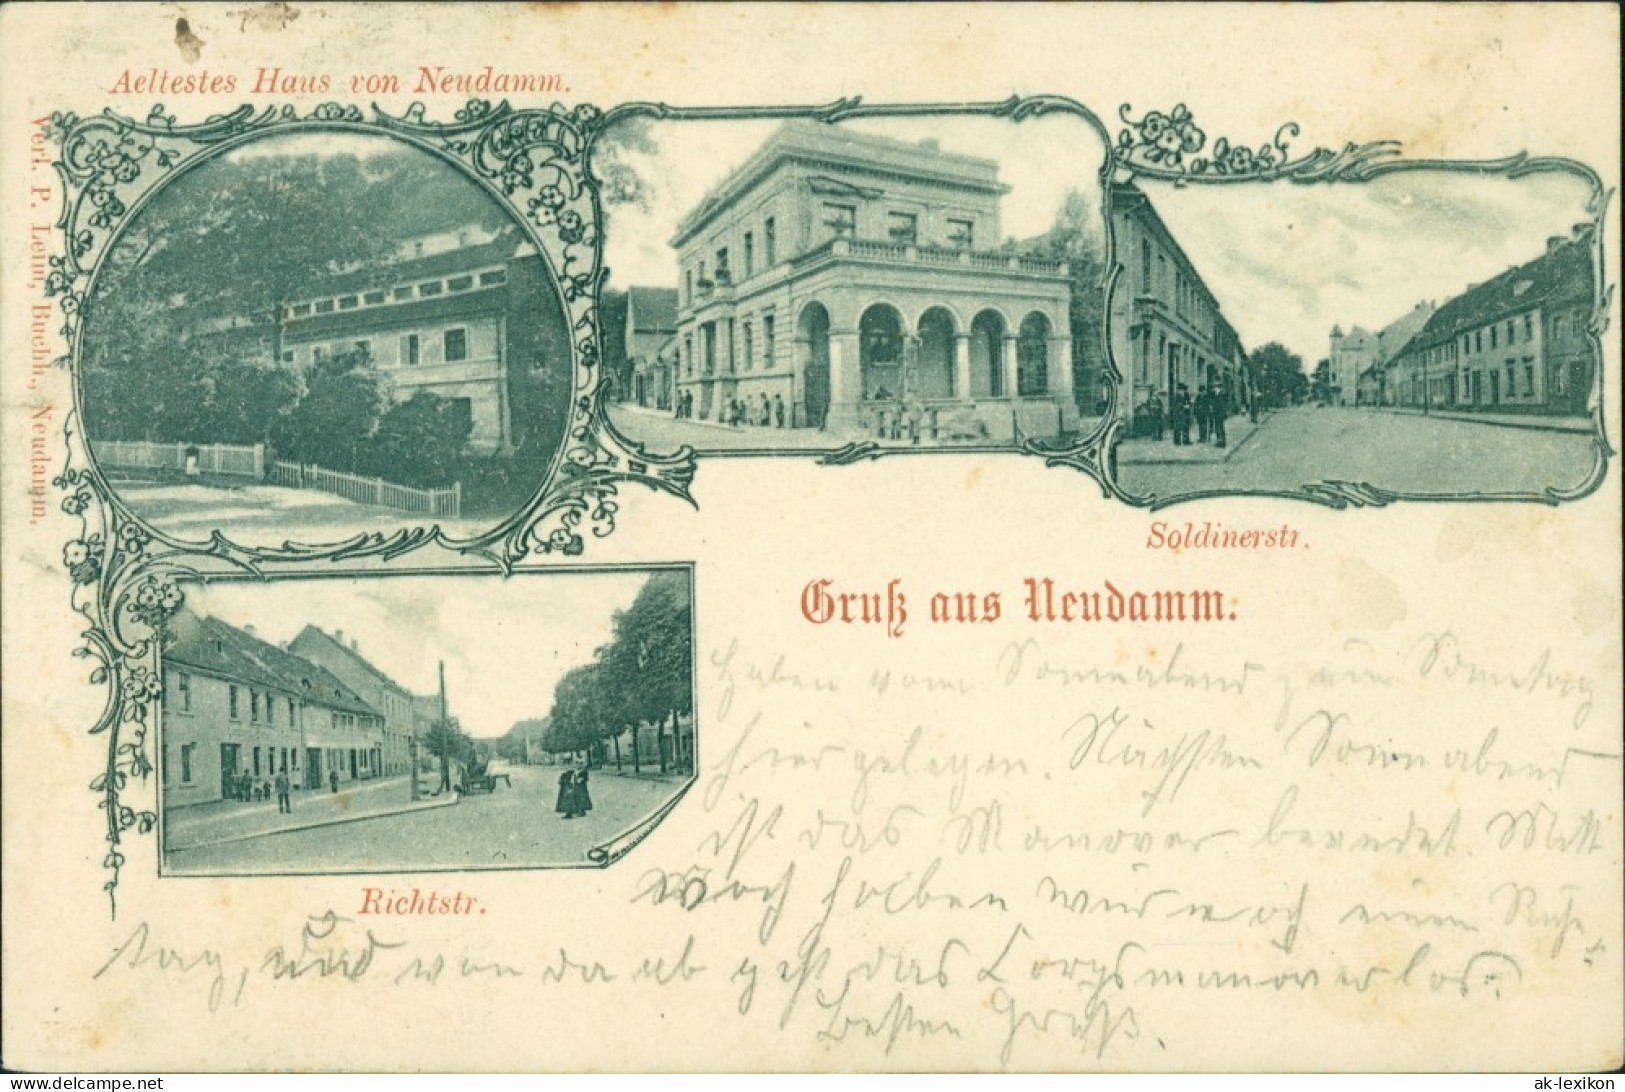 Aeltestes Haus von Neudamm.
Verl. P. Lenm, Buchh., Neudamm.
Soldinerstr.
Gruß aus Neudamm.
Richtstr.
Haben vom Sonnabend zum Sonntag
hier gelegen. Nächsten Sonnabend
ist das Manöver beendet. Mitt
woch haben wir noch einen Ruhe
tag, und von da ab geht das Corpsmanöver los.
Besten Gruß.
delcampe.net
ak-lexikon